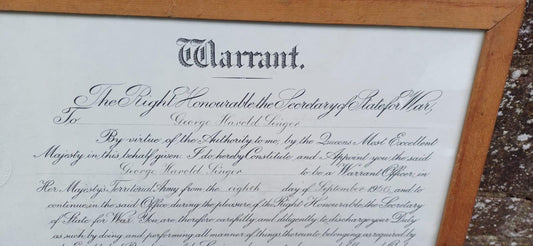 Warrant.
The Right Honourable the Secretary of State for War,
To George Harold Singer
By virtue of the Authority to me, by the Queens Most Excellent
Majesty in this behalf given I do hereby Constitute and Appoint you the said
George Harold Singer to be a Warrant Officer, in
Her Majesty's Territorial Army from the eighth day of September and to
continue in the said Office during the pleasure of the Right Honourable the Secretary
of State for War. You are therefore carefully and diligently to discharge your Duty
as such by doing and performing all manner of things thereunto belonging as required by